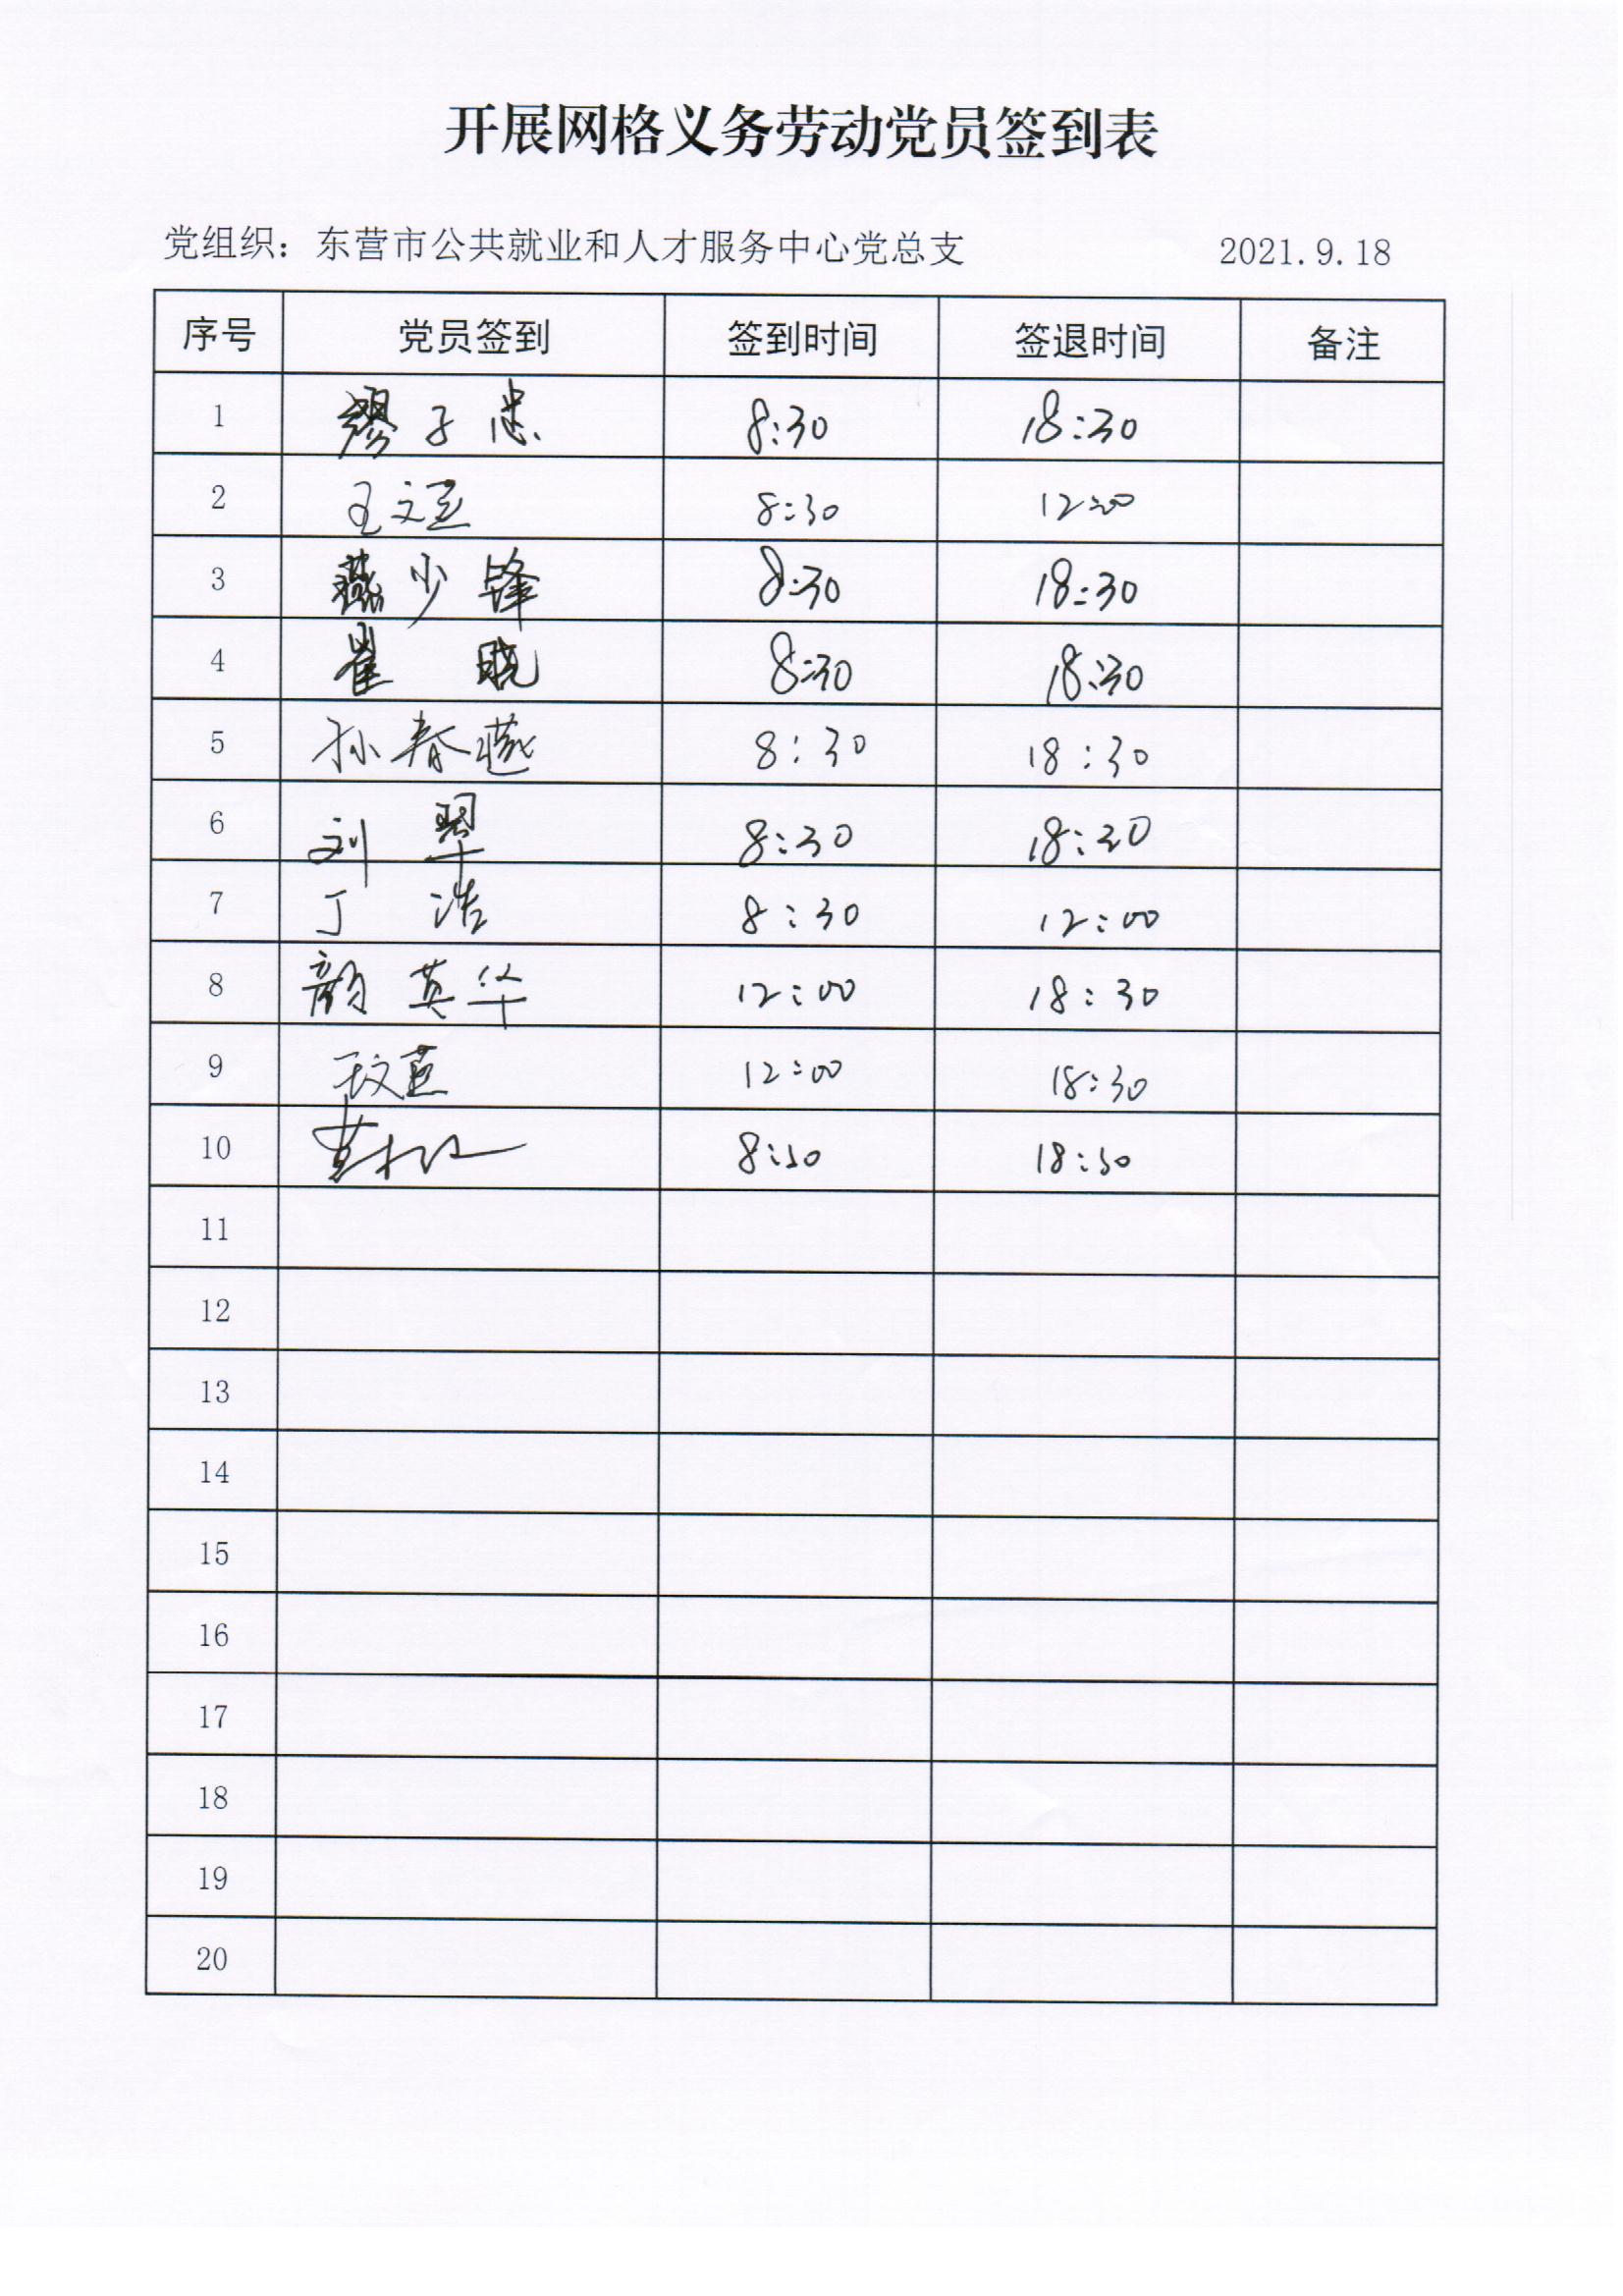 开展网格义务劳动党员签到表
党组织：东营市公共就业和人才服务中心党总支 2021.9.18
序号 党员签到 签到时间 签退时间 备注
1 缪子忠 8:30 18:30
2 8:30 12:00
3 燕少锋 8:30 18:30
4 崔晓 8:30 18:30
5 孙春燕 8:30 18:30
6 刘翠 8:30 18:30
7 丁浩 8:30 12:00
8 颜英华 12:00 18:30
9 12:00 18:30
10 8:30 18:30
11
12
13
14
15
16
17
18
19
20